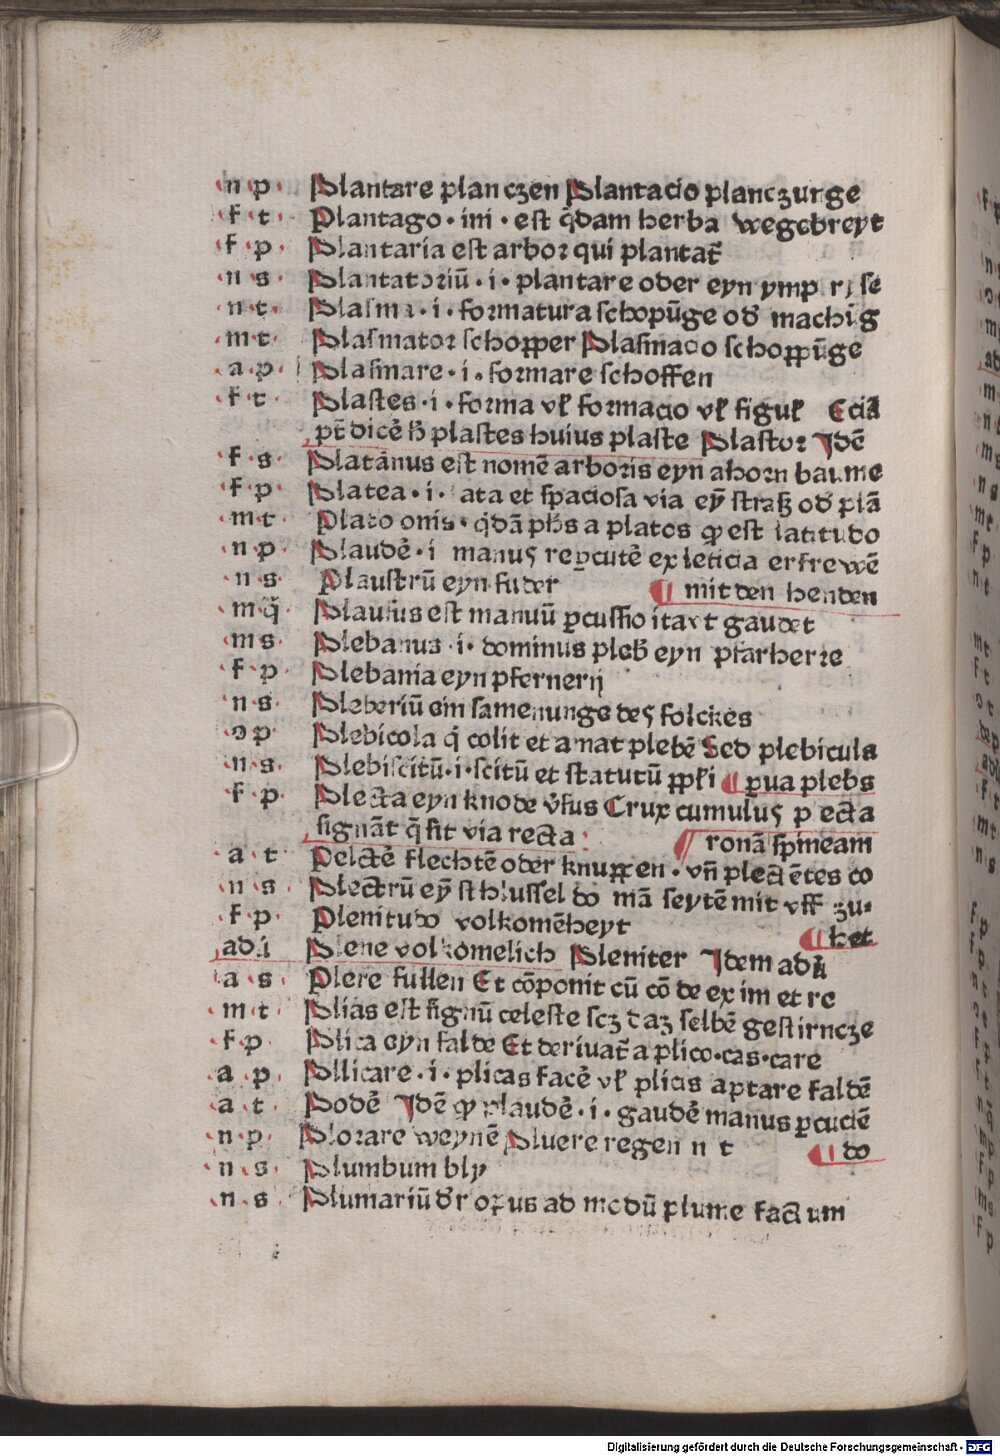 n p Plantare planczen Plantacio planczunge
f t Plantago · ini · est q̄dam herba wegebreyt
f p Plantaria est arbor qui plantat᷑
n s Plantatoriū · i · plantare oder eyn ymp
n t Plasma · i · formatura schopūge od᷑ machīg
m t Plasmator schopper Plasmacio schoppūge
a p Plasmare · i · formare schoffen
f t Plastes · i · forma vl̛ formacio vl̛ figul̛ Eciā
pt̄ dicē h̛ plastes huius plaste Plastor Idē
f s Platanus est nomē arboris eyn ahorn baume
f p Platea · i · lata et spaciosa via eȳ straß od᷑ plā
m t Plato onis · q̇dā ph̄s a platos qͥ est latitudo
n p Plaudē · i manus rep̱cutē ex leticia erfrewē
n s Plaustrū eyn fuder ¶ mit den henden
m q̄ Plausus est manuū p̱cussio ita gaudet
m s Plebanus · i · dominus pleb̛ eyn pfarherre
f p Plebania eyn pfernerij
n s Pleberiū ein samenunge des folckes
ɔ p Plebicola q̇ colit et amat plebē Sed plebicula
n s Plebiscitū · i · scitū et statutū pp̱l̛i ¶ p̱ua pleb̛s
f p Plecta eyn knode v̛sus Crux cumulus plecta
signāt q̄ fit via recta ¶ ronā spineam
a t Pelctē flechtē oder knuppen · vn̄ plectētes co
n s Plectrū eȳ slhussel do mā seytē mit vff zu-
f p Plenitudo volkomēheyt ¶ het
ad.i Plene volkomelich Pleniter Idem ad
a s Plere fullen Et cōponit cū cō de ex im et re
m t Plias est signū celeste scz daz selbē gestirncze
f p Plica eyn falde Et deriuat᷑ a plico · cas · care
a p Pllicare · i · plicas facē vl̛ plicis aptare faldē
a t Podē Idē qͥ plaudē · i · gaudē manus p̱cuciē
n p Plorare weynē Pluere regen n t ¶ do
n s Plumbum bly
n s Plumariū d᷑r opus ad modū plume factum
Digitalisierung gefördert durch die Deutsche Forschungsgemeinschaft - DFG